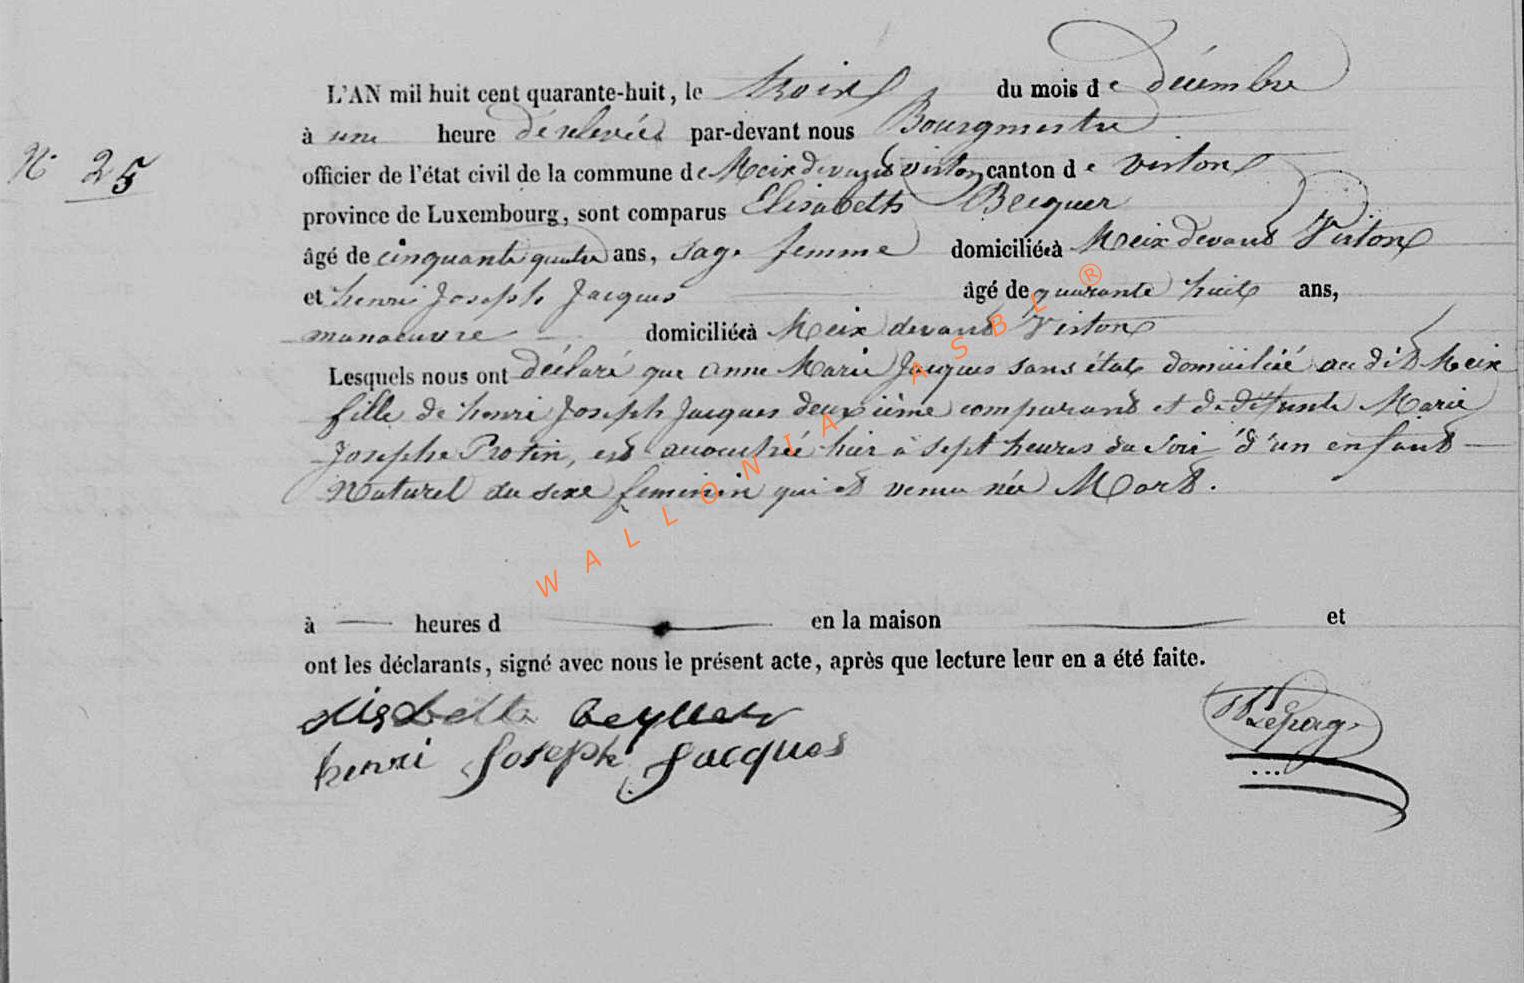 L'AN mil huit cent quarante-huit, le trois du mois de décembre
à une heure de relevée par-devant nous Bourgmestre
N° 25
officier de l'état civil de la commune de Meix devant virton canton de virton
province de Luxembourg, sont comparus Elisabeth Becquer
âgé de cinquante quatre ans, sage femme domiciliée à Meix devant Virton
et henri Joseph Jacques âgé de quarante huit ans,
manoeuvre domiciliée à Meix devant Virton
Lesquels nous ont déclaré que anne Marie Jacques sans état domiciliée au dit Meix
fille de henri Joseph Jacques deuxième comparant et de défunte Marie
Josephe Protin, est accouchée hier à sept heures du soir d'un enfant
Naturel du sexe feminin qui est venu née Mort.
WALLONIA ASBL ®
à heures d en la maison et
ont les déclarants, signé avec nous le présent acte, après que lecture leur en a été faite.
henri Joseph Jacques
Lepage